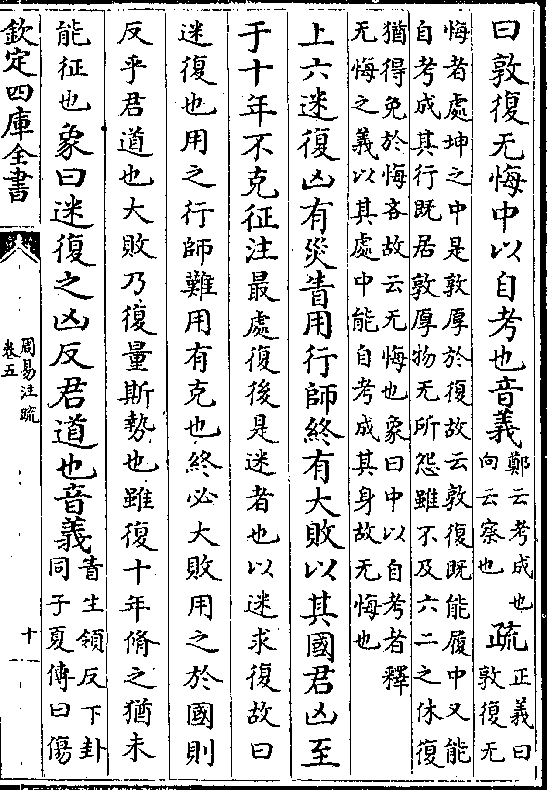 曰敦復无悔中以自考也音義鄭云考成也向云察也疏正義曰敦復无
悔者處坤之中是敦厚於復故云敦復既能履中又能
自考成其行既居敦厚物无所怨雖不及六二之休復
猶得免於悔吝故云无悔也象曰中以自考者釋
无悔之義以其處中能自考成其身故无悔也
上六迷復凶有災眚用行師終有大敗以其國君凶至
于十年不克征注最處復後是迷者也以迷求復故曰
迷復也用之行師難用有克也終必大敗用之於國則
反乎君道也大敗乃復量斯勢也雖復十年脩之猶未
能征也象曰迷復之凶反君道也音義眚生領反下卦同子夏傳曰傷
欽定四庫全書
周易注疏
卷五
十